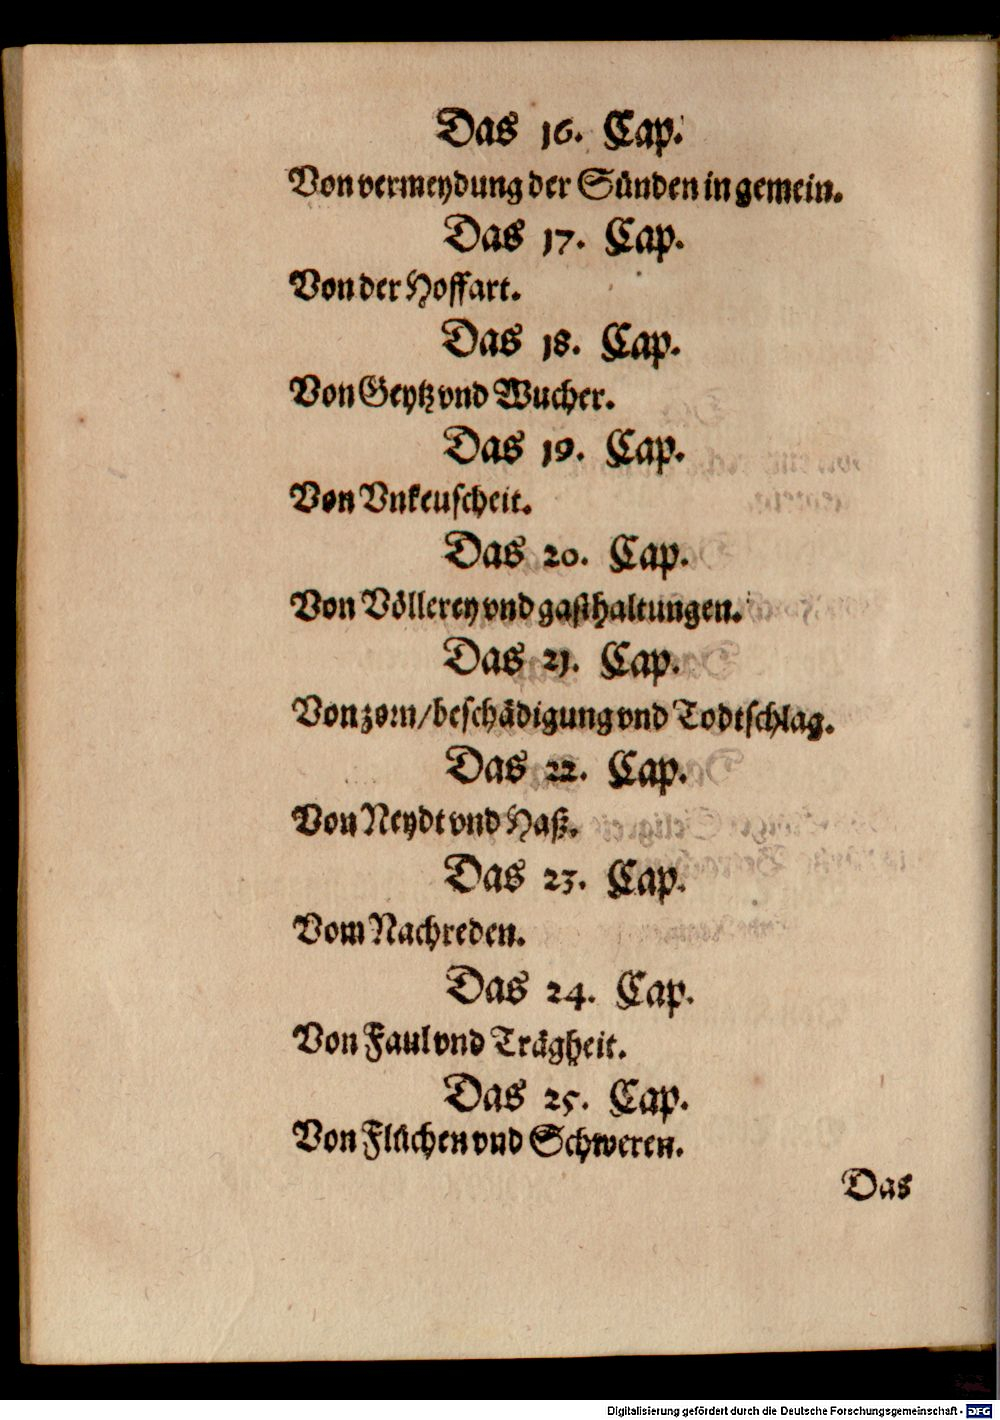 Das 16. Cap.
Von vermeydung der Sünden in gemein.
Das 17. Cap.
Von der Hoffart.
Das 18. Cap.
Von Geytz vnd Wucher.
Das 19. Cap.
Von Vnkeuscheit.
Das 20. Cap.
Von Völlerey vnd gasthaltungen.
Das 21. Cap.
Von zorn/beschädigung vnd Todtschlag.
Das 22. Cap.
Von Neydt vnd Haß.
Das 23. Cap.
Vom Nachreden.
Das 24. Cap.
Von Faul vnd Trägheit.
Das 25. Cap.
Von Flüchen vnd Schweren.
Das
Digitalisierung gefördert durch die Deutsche Forschungsgemeinschaft - DFG